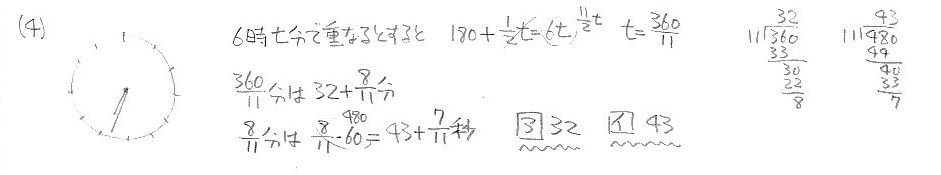 (4)
6時t分で重なるとすると 180+1/2t=6t, 11/2t t=360/11
360/11分は 32+8/11分
8/11分は 8/11·60= 480 43+7/11秒 ヨ 32 イ 43
32
11)360
33
30
22
8
43
11)480
44
40
33
7